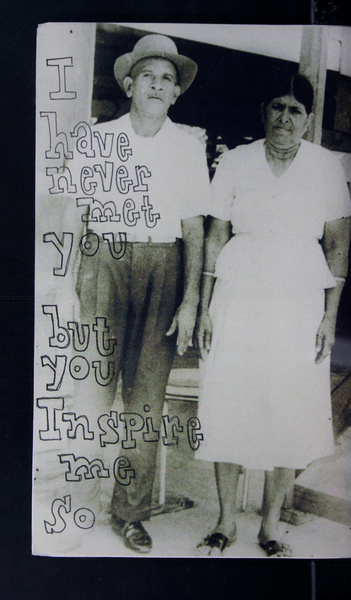 I
have
never
met
you
but
you
Inspire
me
so